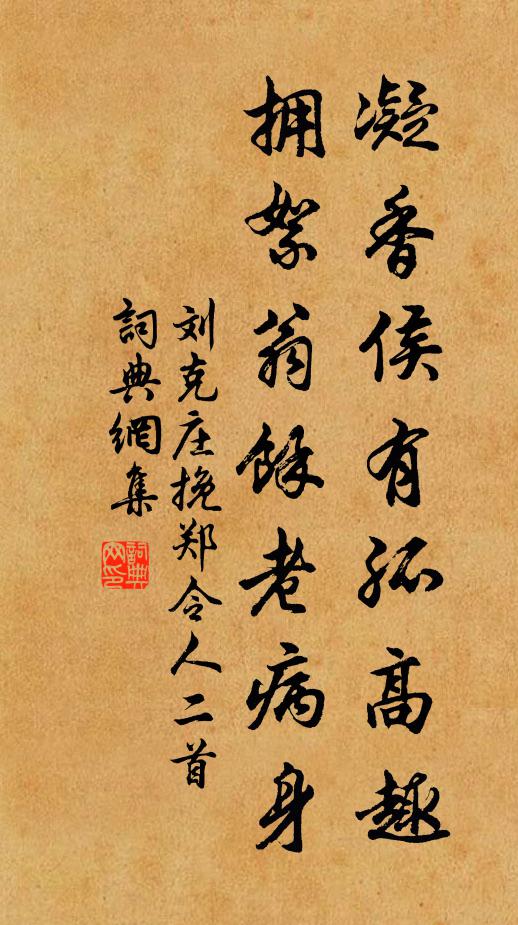 凝香侯有孤高趣
拥絮翁馀老病身
刘克庄挽郑令人二首
詞典網集
詞典
网印